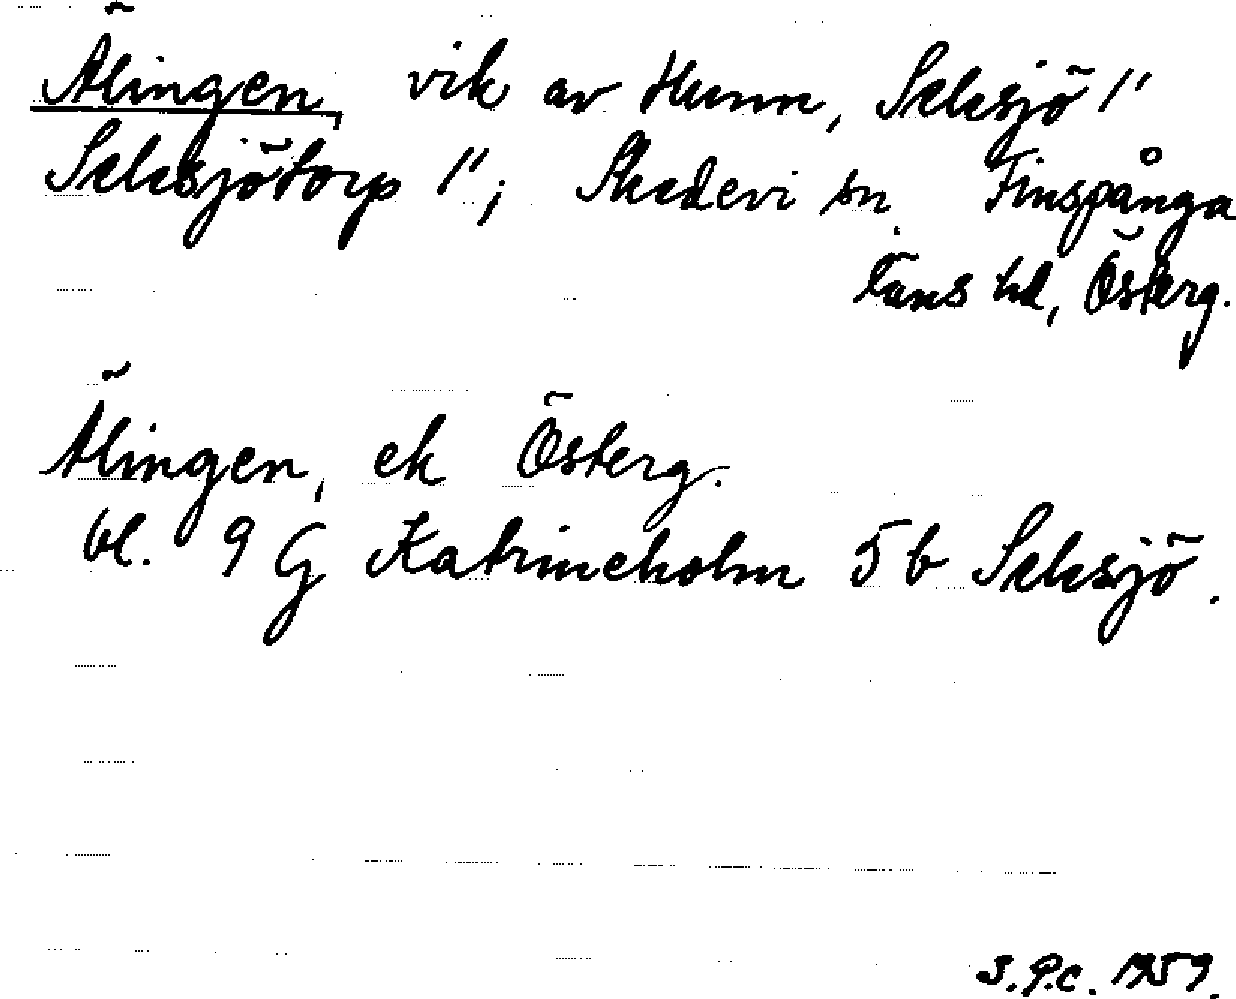 Älingen vik av Hunn, Selesjö 1"
Selesjötorp 1"; Skedevi sn Finspånga
läns hd, Österg.
Älingen, ek Österg.
bl. 9 G Katrineholm 5 b Selesjö.
S.P.C. 1959.